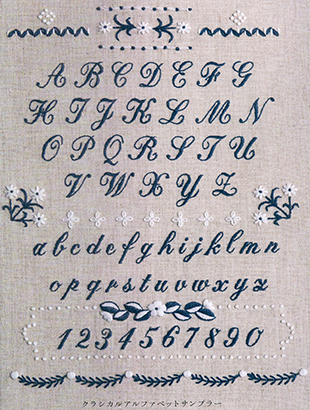 A B C D E F G
H I J K L M N
O P Q R S T U
V W X Y Z
a b c d e f g h i j k l m n
o p q r s t u v w x y z
1 2 3 4 5 6 7 8 9 0
クラシカルアルファベットサンプラー